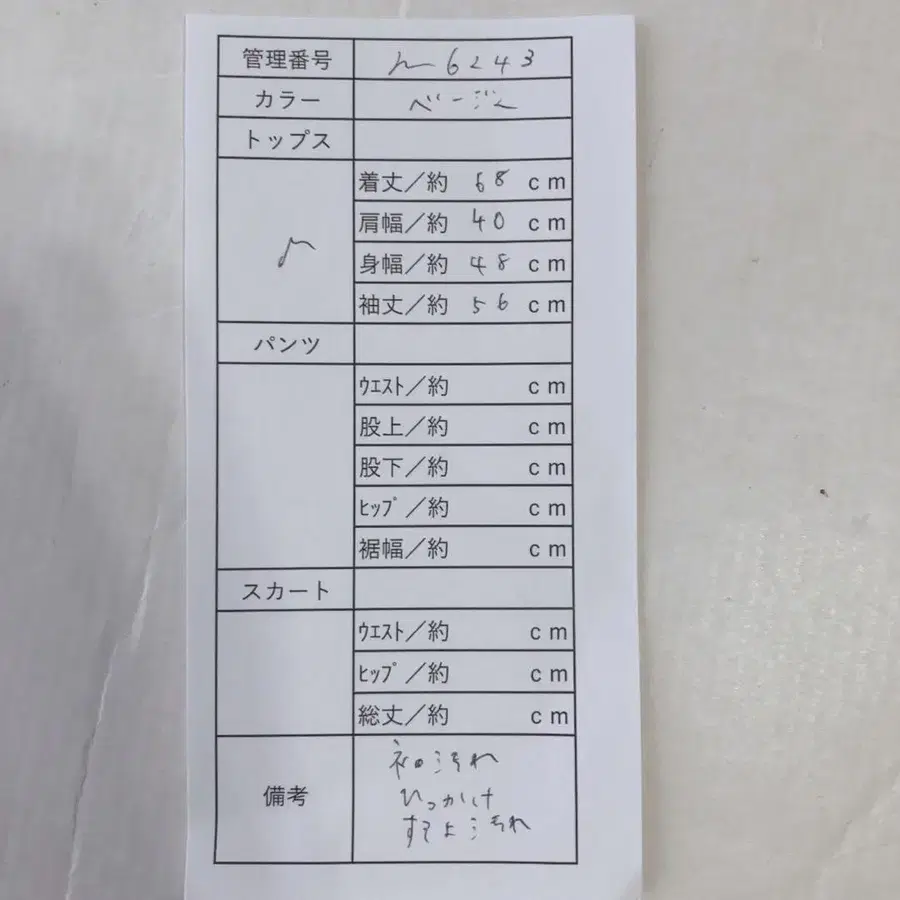 管理番号 m6243
カラー ベージュ
トップス
着丈/約 68 cm
肩幅/約 40 cm
身幅/約 48 cm
M
袖丈/約 56 cm
パンツ
ウエスト/約 cm
股上/約 cm
股下/約 cm
ヒップ/約 cm
裾幅/約 cm
スカート
ウエスト/約 cm
ヒップ/約 cm
総丈/約 cm
備考
袖汚れ
ひっかけ
汚れ